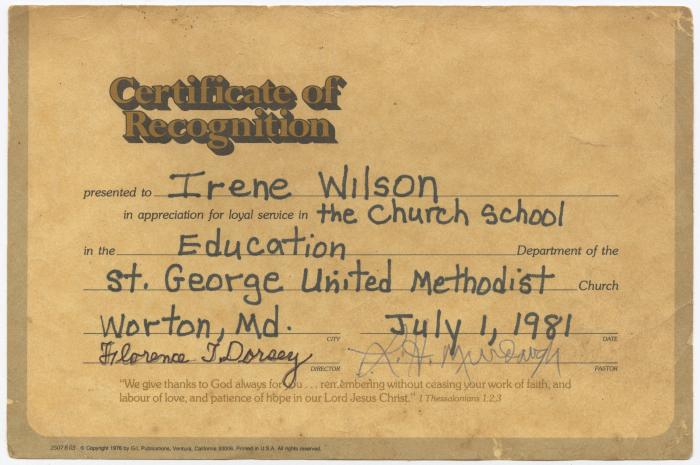 Certificate of
Recognition
presented to Irene Wilson
in appreciation for loyal service in the Church School
in the Education Department of the
St. George United Methodist Church
Worton, Md. CITY July 1, 1981 DATE
Florence T. Dorsey DIRECTOR PASTOR
"We give thanks to God always for you . . . remembering without ceasing your work of faith, and
labour of love, and patience of hope in our Lord Jesus Christ." 1 Thessalonians 1:2,3
© Copyright 1976 by G/L Publications, Ventura, California 93006. Printed in U.S.A. All rights reserved.